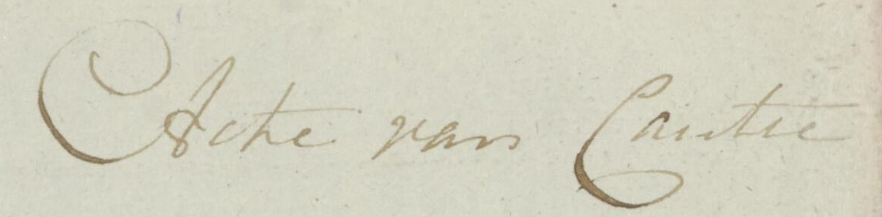 Acte van Cautie